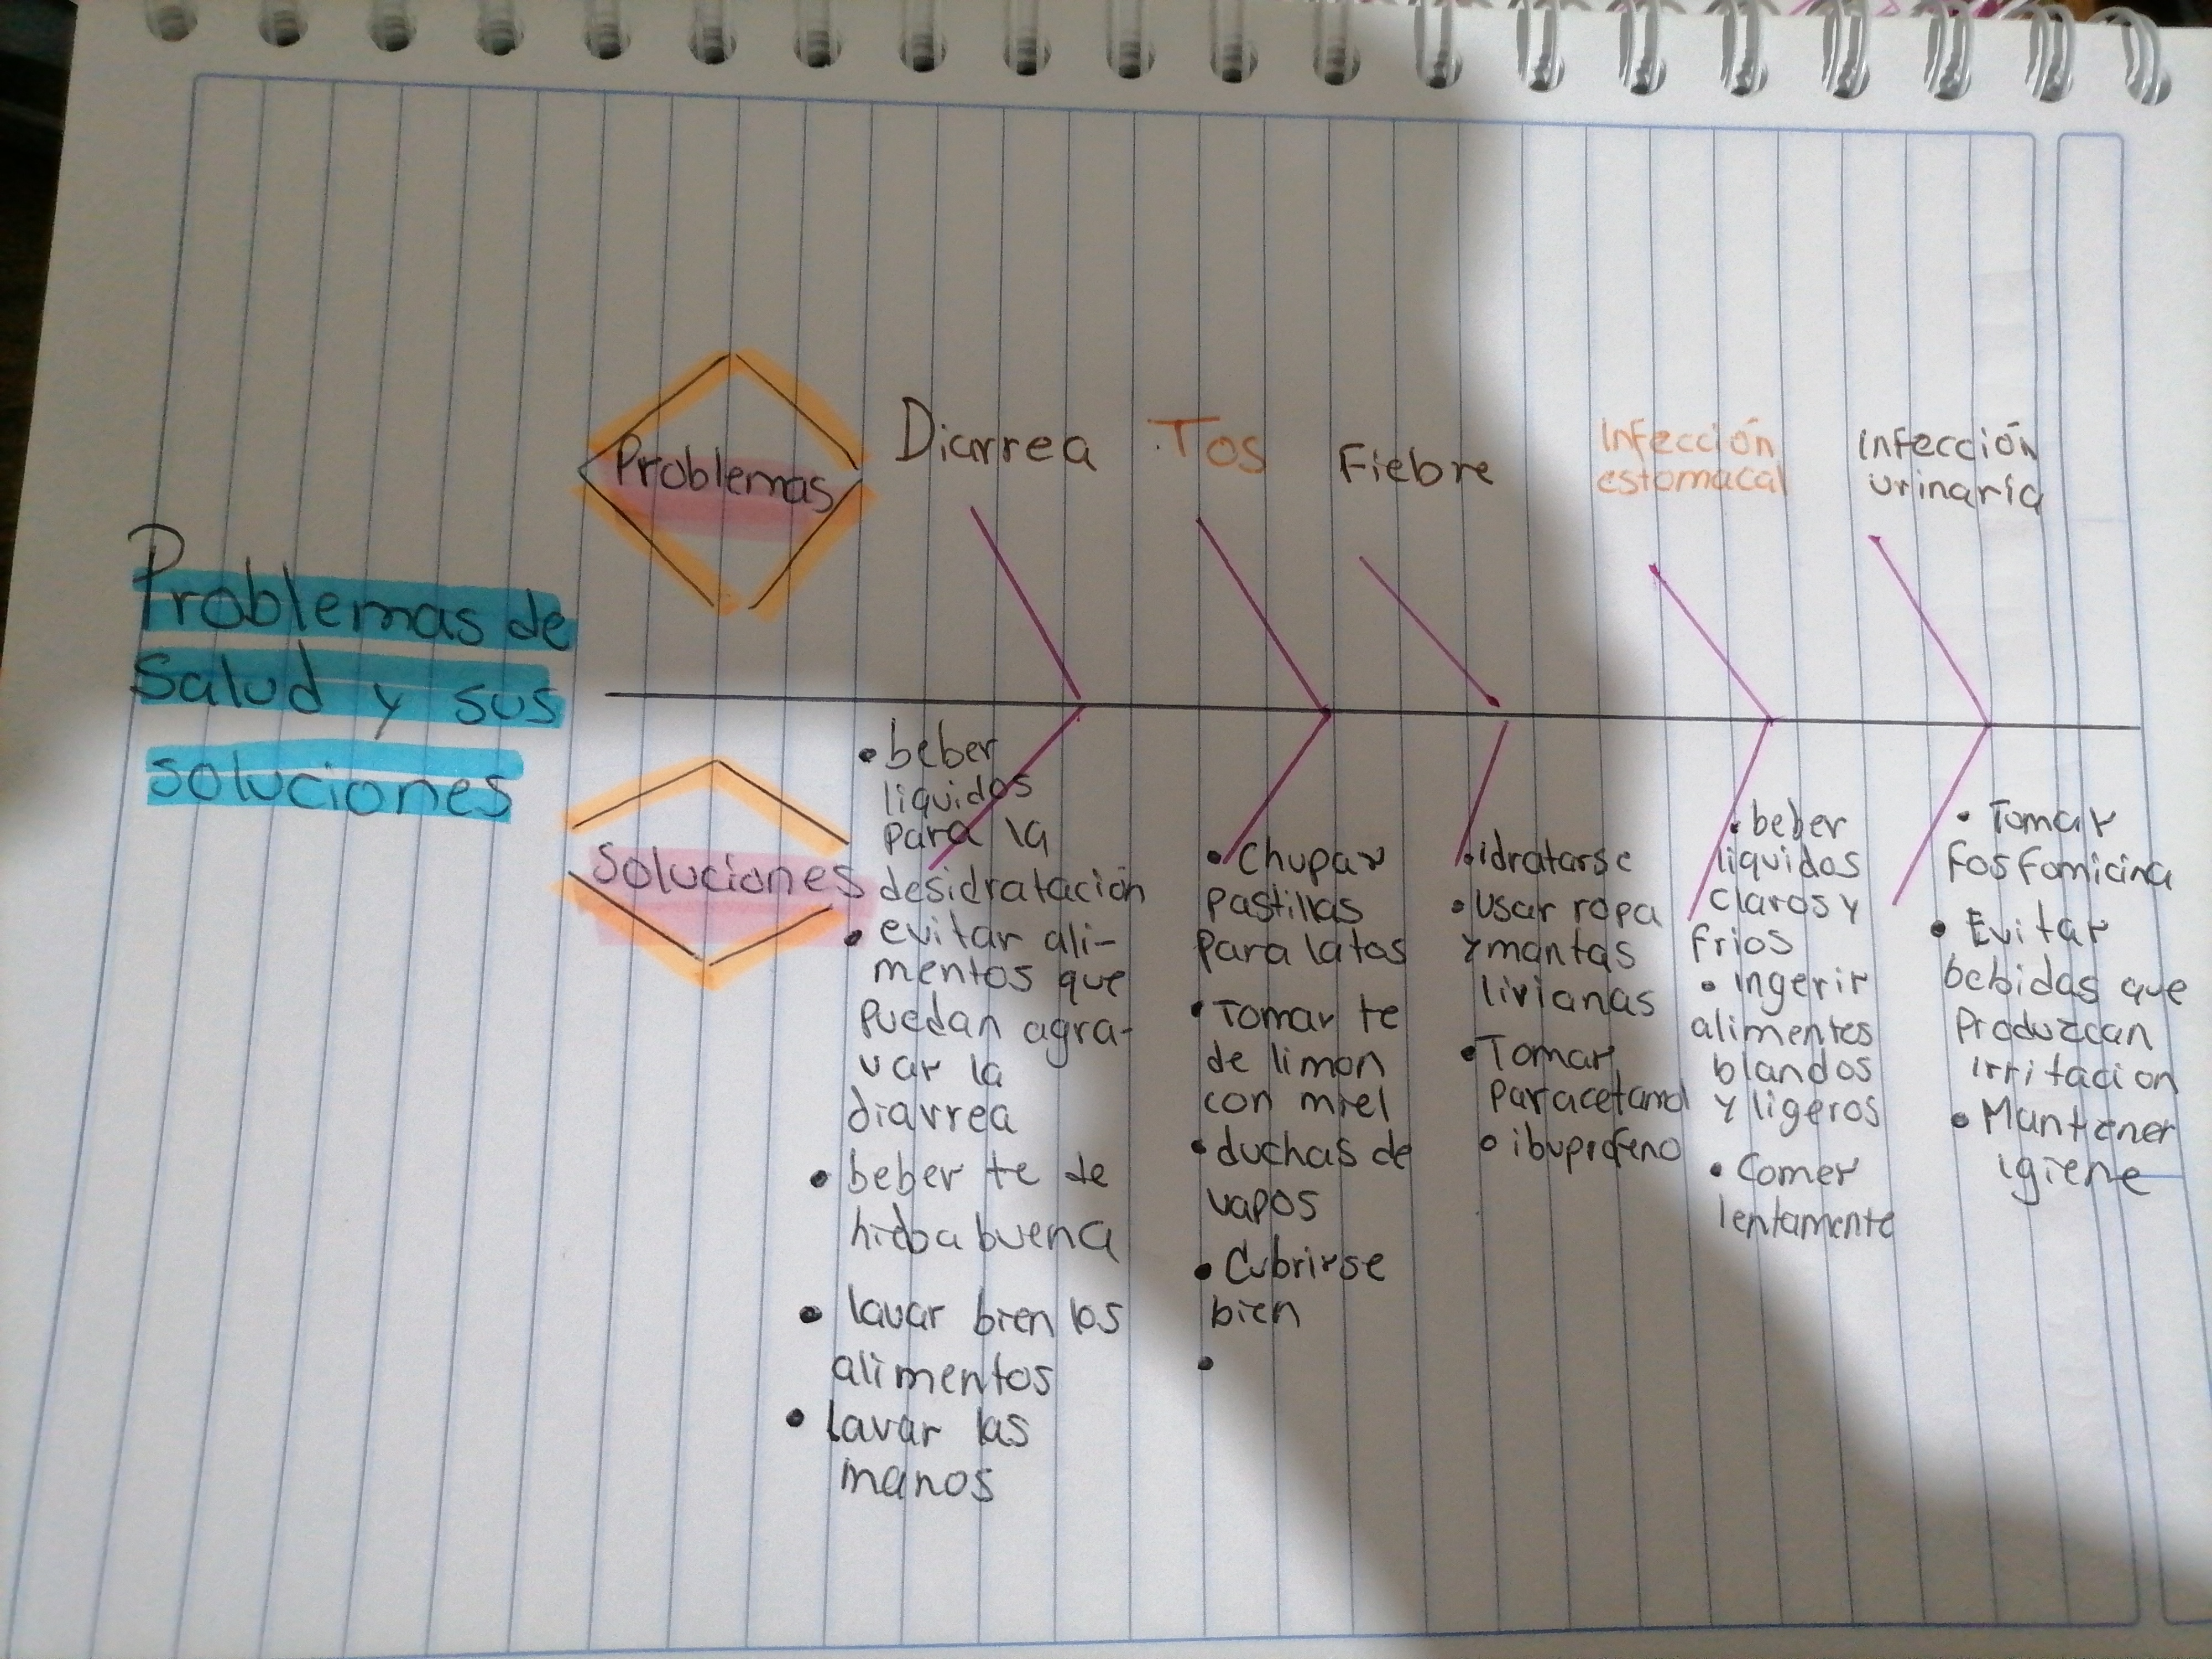 Problemas de
Salud y sus
soluciones
Problemas
Diarrea
Tos
Fiebre
Infección
estomacal
Infección
urinaria
Soluciones
• beber
liquidos
para la
desidratación
• evitar ali-
mentos que
puedan agra-
var la
diarrea
• beber te de
hieba buena
• lavar bien los
alimentos
• lavar las
manos
• Chupar
Pastillas
Para la tos
• Tomar te
de limon
con miel
• duchas de
vapos
• Cubrirse
bien
•
• idratarse
• Usar ropa
y mantas
livianas
• Tomar
Paracetamol
o ibuprofeno
• beber
liquidos
Claros y
frios
• Ingerir
alimentos
blandos
y ligeros
• Comer
lentamente
• Tomar
Fosfomicina
• Evitar
bebidas que
Produzcan
irritacion
• Mantener
igiene